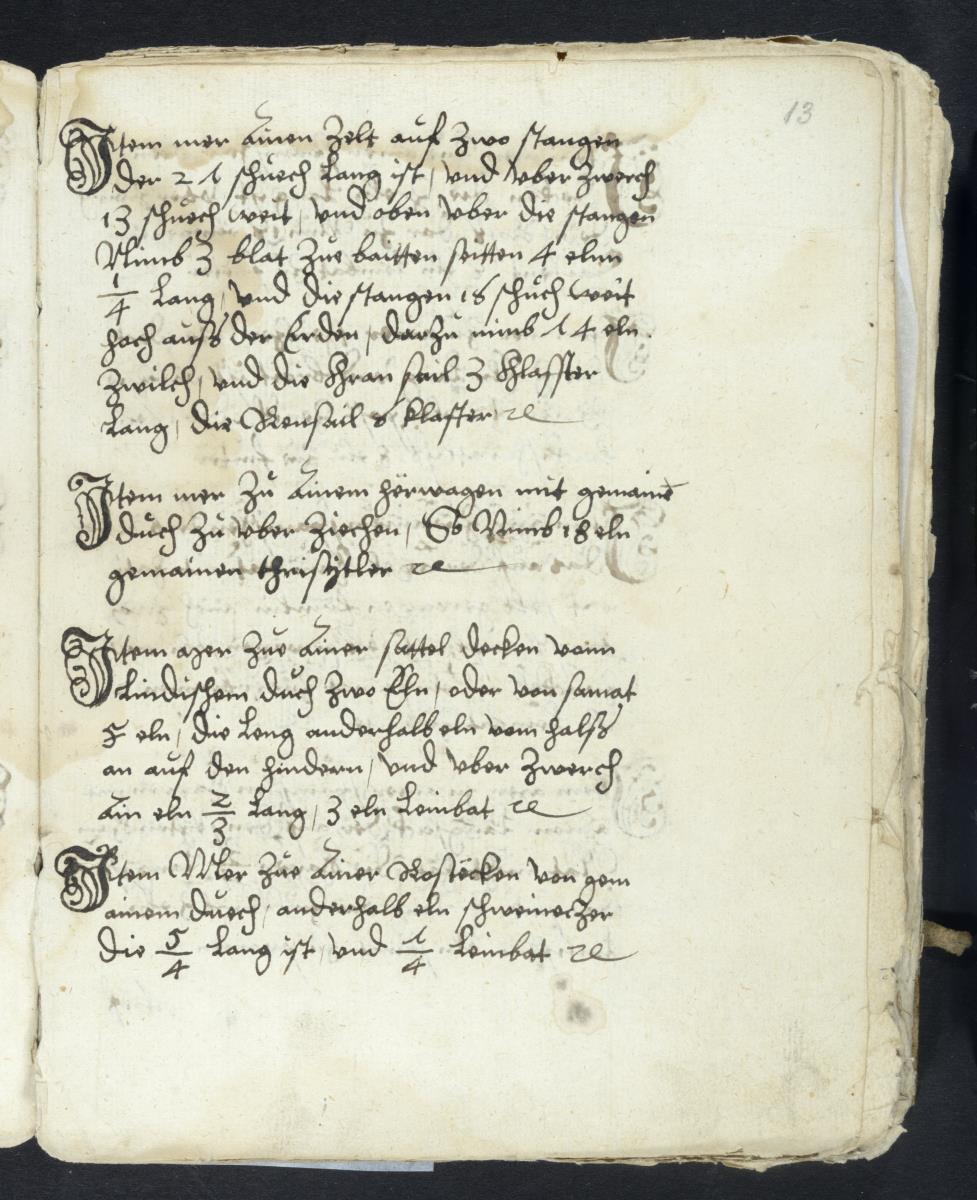 13
Item mer Ainen Zelt auf Zwo stangen
der 21 schuech lang ist, und uber Zwerch
13 schuech weit, und oben uber die stangen
Nimb 3 blat Zue baitten seitten 4 elnn
1/4 lang, und die stangen 16 schuch weit
hoch auß der Erden, darzu nimb 14 eln.
Zwilch, und die Kran sail 3 Klaffter
lang, die sail 6 klafter
Item mer Zu Ainem hërwagen mit gemainē
duch Zu uber Ziechen, So Nimb 18 eln
gemainen
Item mer Zue Ainer sattel decken vonn
Lindischem duch Zwo Eln, oder von samat
5 eln, die Leng anderhalb eln vom halß
an auf den hindern, und uber Zwerch
Ain eln 2/3 lang, 3 eln Leinbat
Item Mer Zue Ainer Rostëcken von gem
ainem duech, anderhalb eln
die 5/4 lang ist, und 1/4 Leinbat